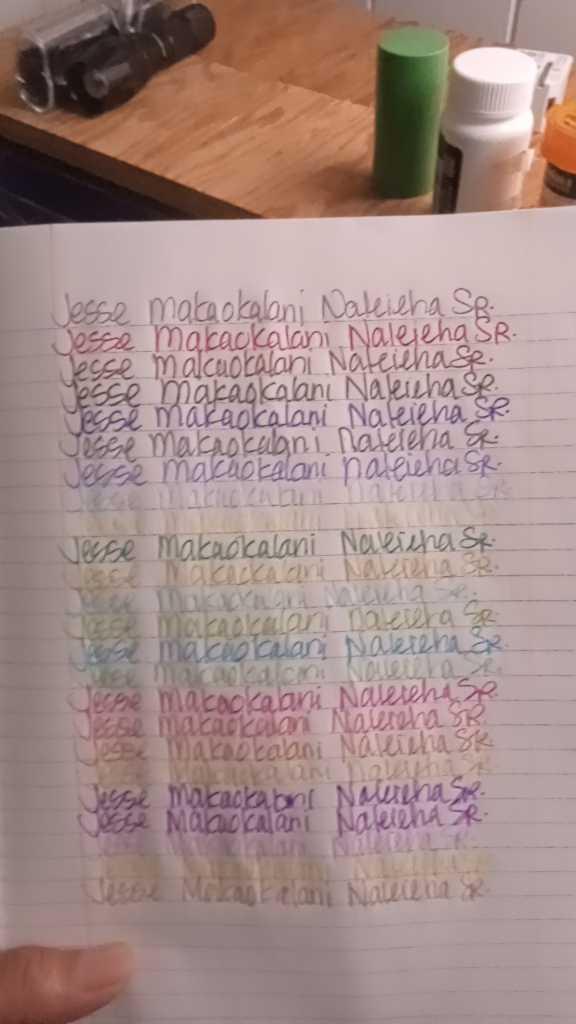 Jesse Makaokalani Naleieha SR.
Jesse Makaokalani Naleieha SR.
Jesse Makaokalani Naleieha SR.
Jesse Makaokalani Naleieha SR.
Jesse Makaokalani Naleieha SR.
Jesse Makaokalani Naleieha SR.
Jesse Makaokalani naleieha SR.
Jesse Makaokalani Naleieha SR.
Jesse Makaokalani Naleieha SR.
Jesse Makaokalani Naleieha SR.
Jesse Makaokalani Naleieha SR.
Jesse Makaokalani Naleieha SR.
Jesse Makaokalani Naleieha SR.
Jesse Makaokalani Naleieha SR.
Jesse Makaokalani Naleieha SR.
Jesse Makaokalani Naleieha SR.
Jesse Makaokalani Naleieha SR.
Makaokalani Naleieha SR
Jesse Makaokalani Naleieha SR.
Jesse Makaokalani Naleieha SR.
Jesse Makaokalani Naleieha SR.
Jesse Makaokalani Naleieha SR.